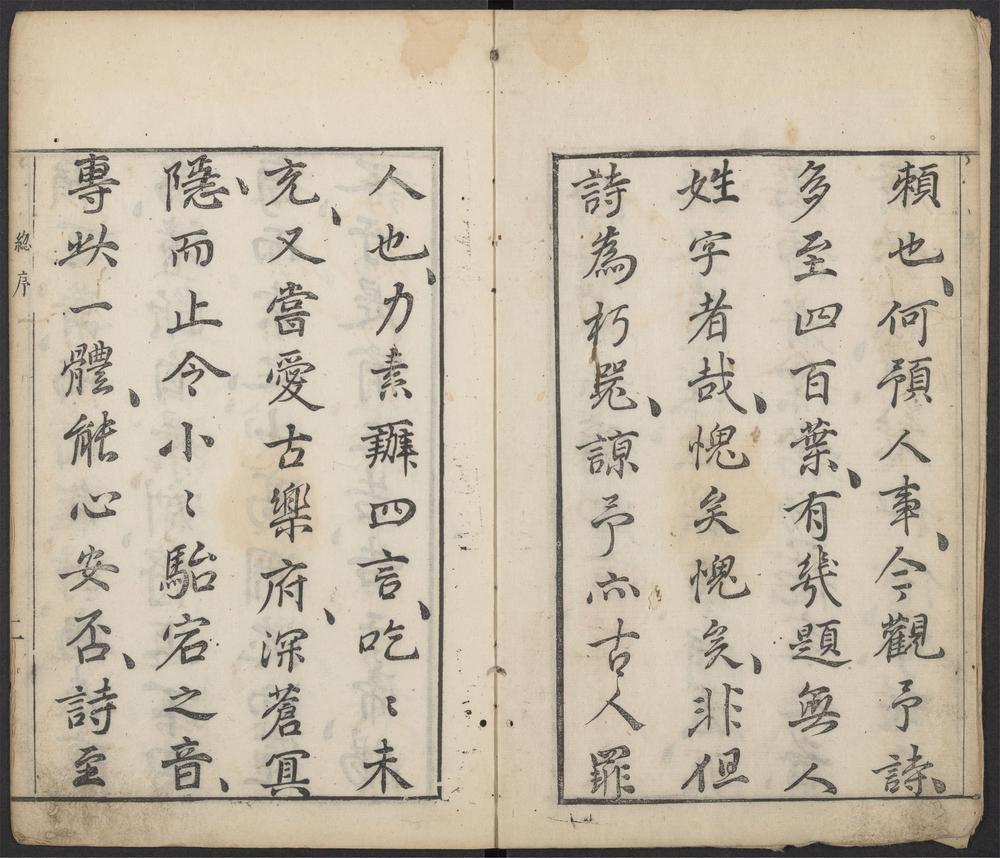 頼也、何預人事、今觀予詩、
多至四百葉、有幾題無人
姓字者哉、愧矣愧矣、非但
詩為朽器、諒予亦古人罪
人也、力素辦四言、吃〻未
充、又嘗愛古樂府、深蒼冥
隱、而止令小〻駘宕之音、
專此一體、能心安否、詩至
總序 二